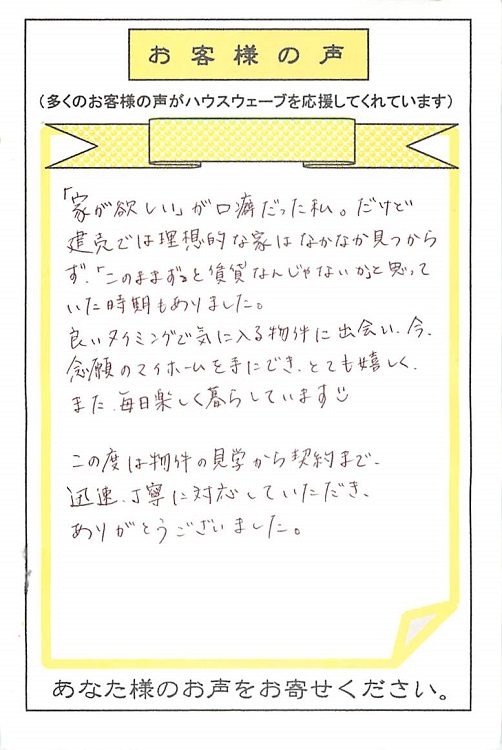 お客様の声
（多くのお客様の声がハウスウェーブを応援してくれています）
「家が欲しい」が口癖だった私。だけど
建売では理想的な家はなかなか見つから
ず、「このままずっと賃貸なんじゃないか」と思って
いた時期もありました。
良いタイミングで気に入る物件に出会い、今、
念願のマイホームを手にでき、とても嬉しく、
また、毎日楽しく暮らしています☺
この度は物件の見学から契約まで、
迅速、丁寧に対応していただき、
ありがとうございました。
あなた様のお声をお寄せください。